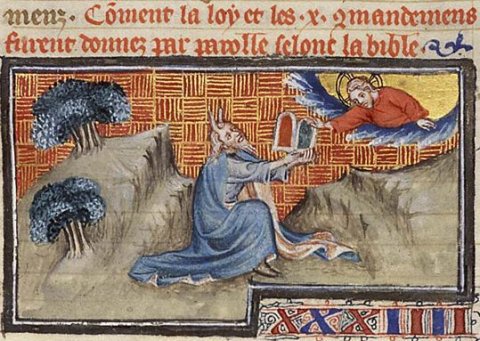 menz. Cõment la loy et les .x. ꝯmandemens
furent donnez par parolle selont la bible